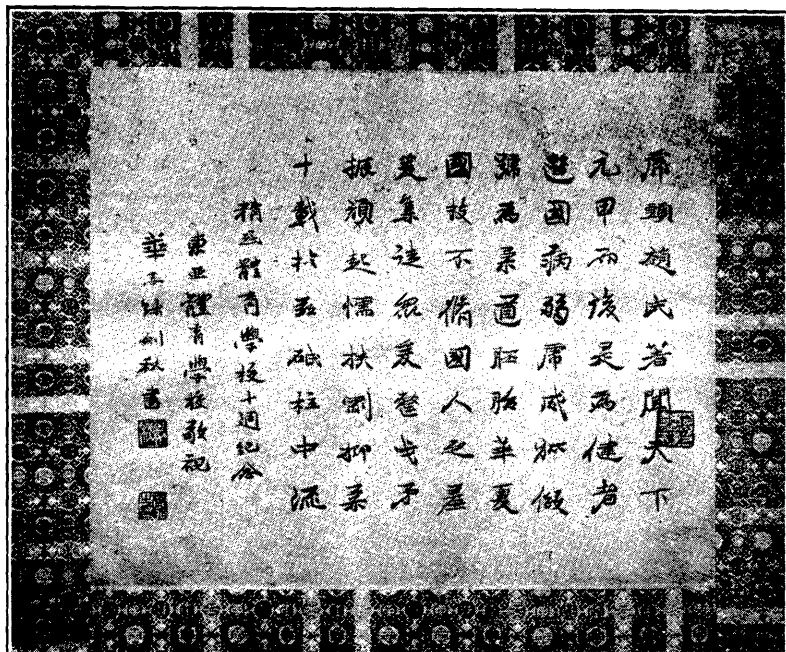 虎頭趙氏著聞天下
元甲而後是為健者
國病弱虎威狐假
號為柔道胚胎華夏
國技不脩國人之羞
爰集徒眾爰整戈矛
振頑起懦扶剛抑柔
十載於茲砥柱中流
精武體育學校十週紀念
東亞體育學校敬祝
華亭錢劍秋書